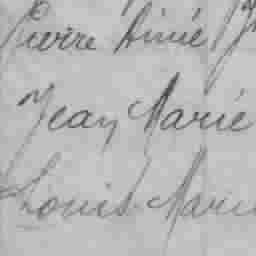 Pierre Aimé
Jean Marie
Louis Marie